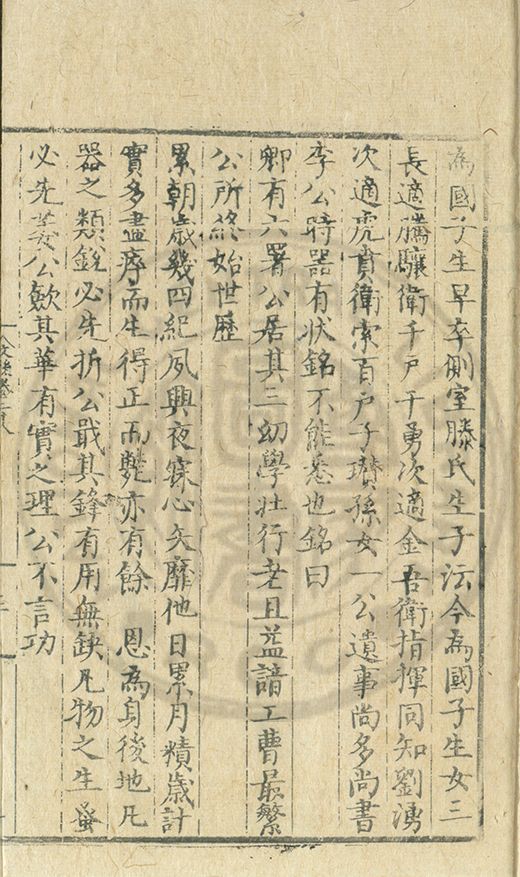 為國子生早卒側室滕氏生子沄今為國子生女三
長適騰驤衛千戶干勇次適金吾衛指揮同知劉湧
次適虎賁衛索百戶子瓚孫女一公遺事尚多尚書
李公時器有狀銘不能悉也銘曰
卿有六署公居其三幼學壯行老且益諳工曹最繁
公所終始世歷
累朝歲幾四紀夙興夜寐心矢靡他日累月積歲計
實多盡瘁而生得正而斃亦有餘　恩為身後地凡
器之類銳必先折公戢其鋒有用無缺凡物之生蚤
必先萎公歛其華有實之理公不言功